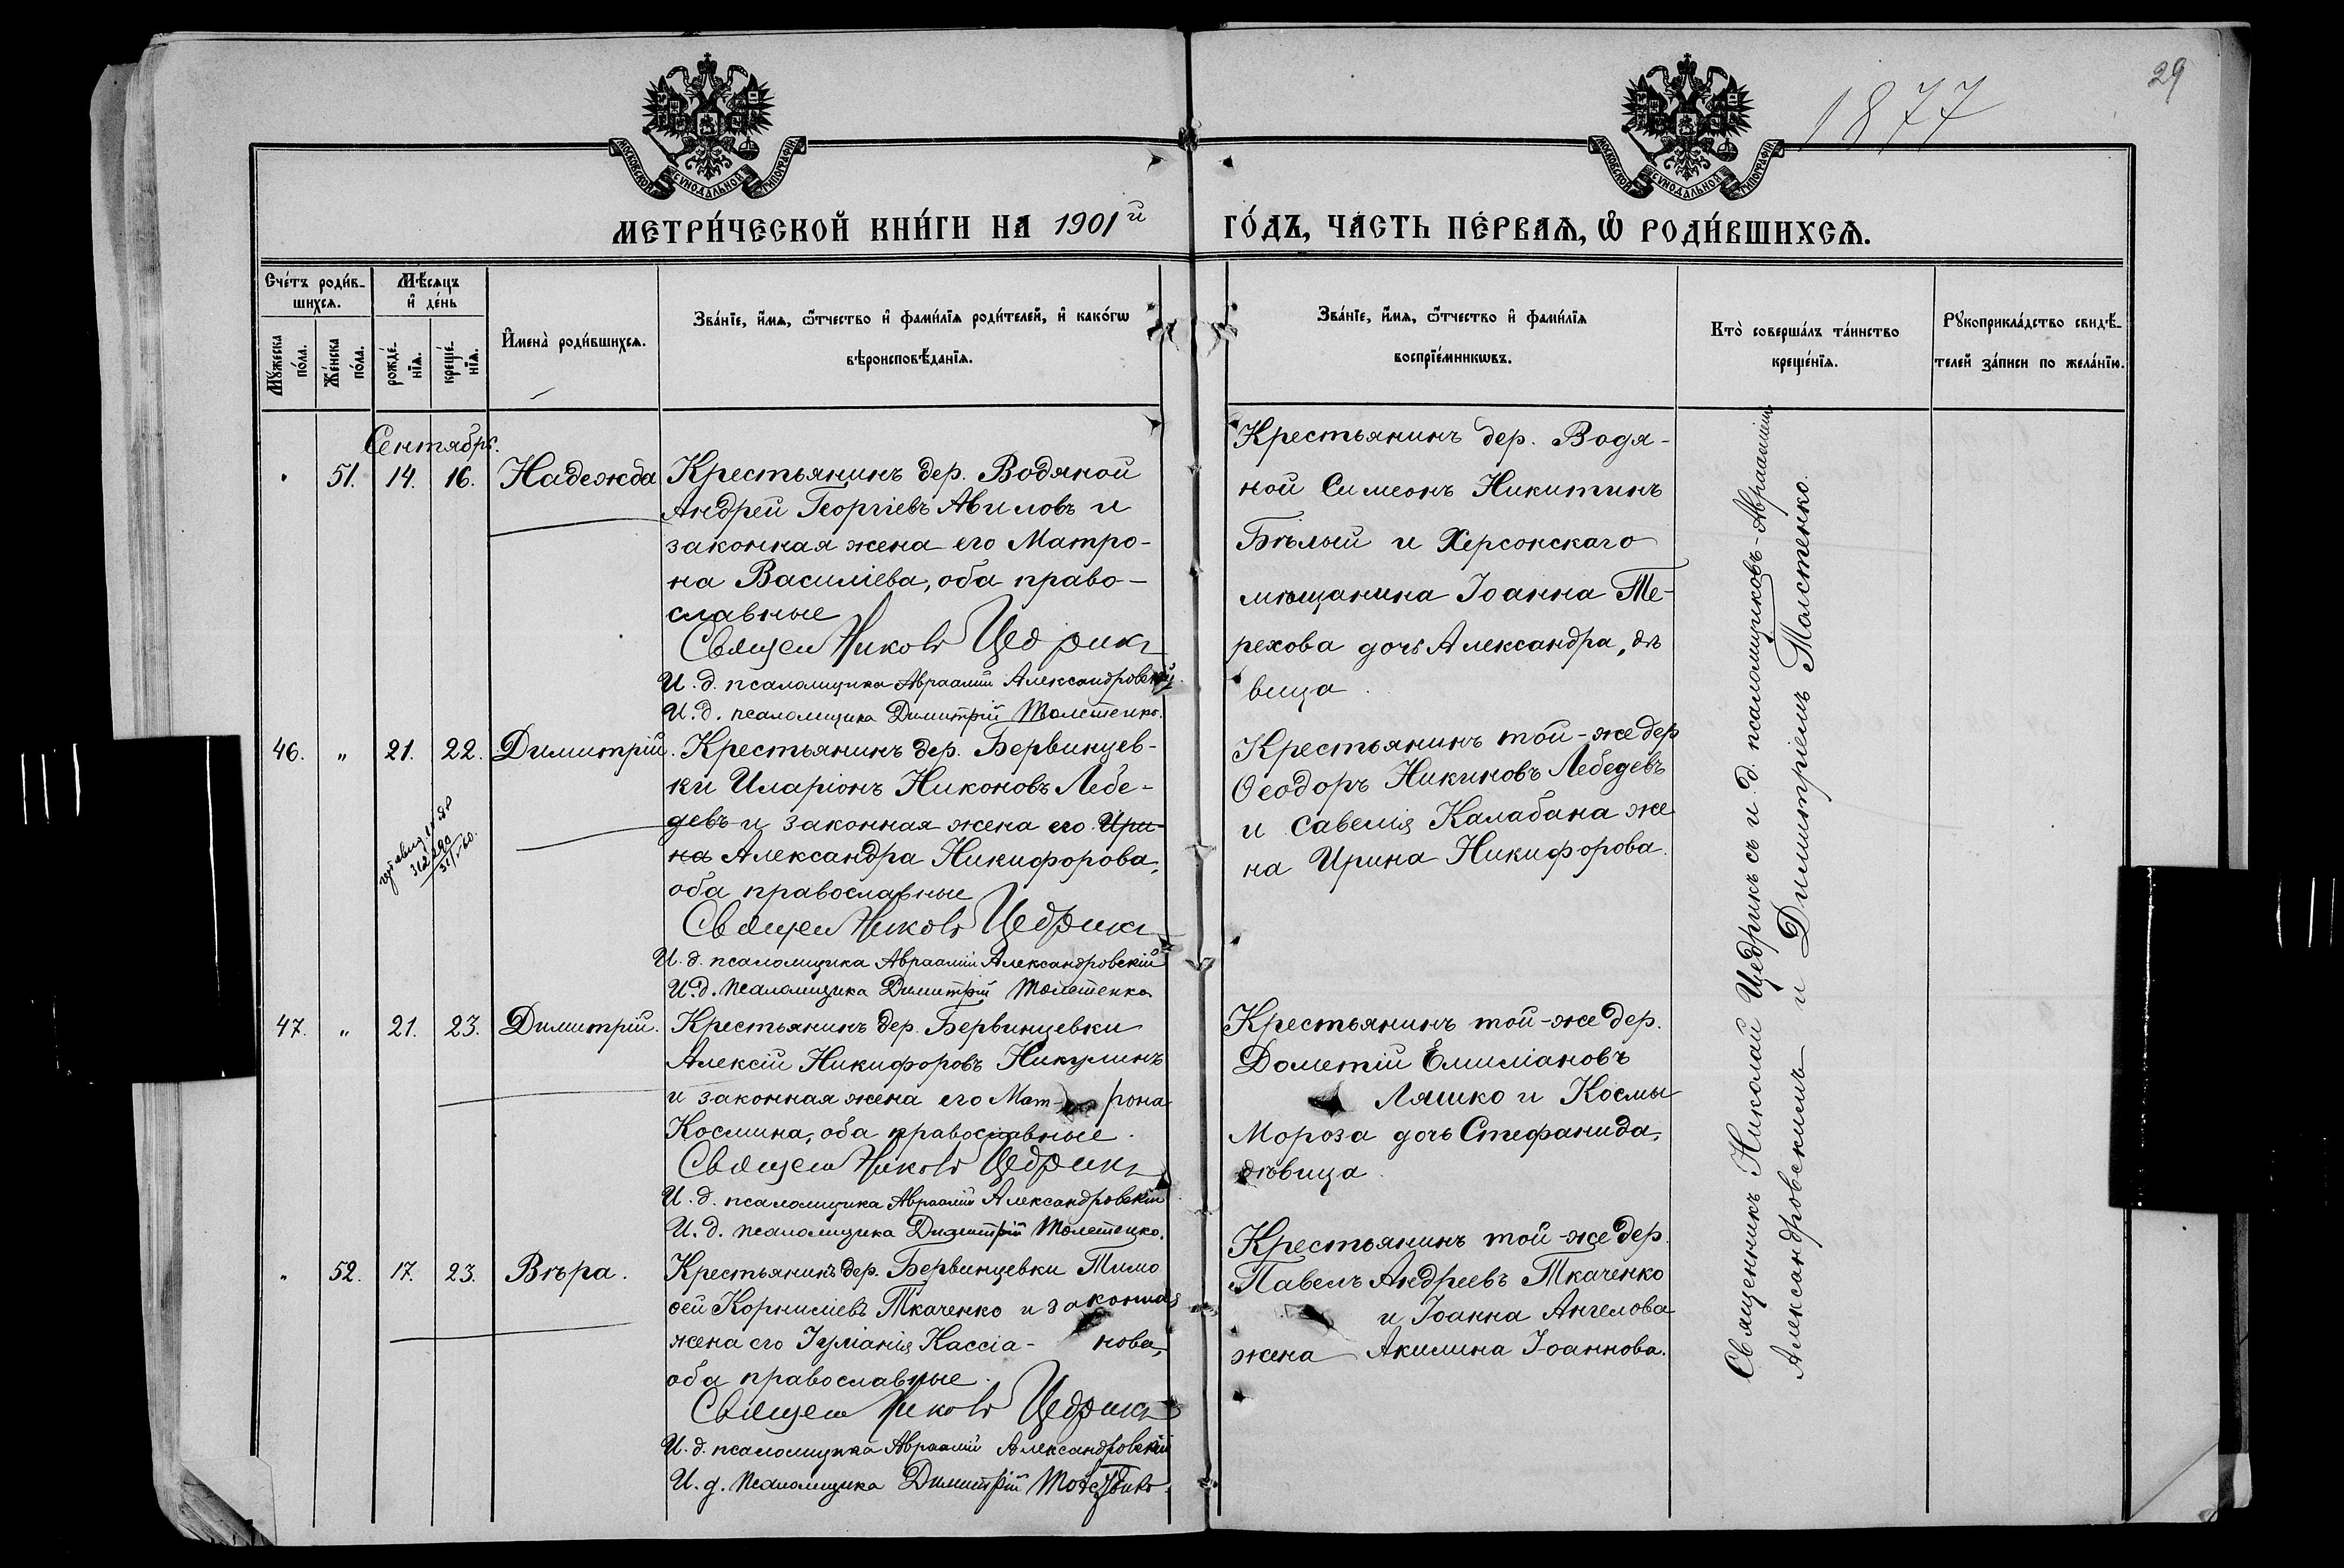 1877
29
МОСКОВСКОЙ СѴНОДАЛЬНОЙ ТИПОГРАФІИ
МОСКОВСКОЙ СѴНОДАЛЬНОЙ ТИПОГРАФІИ
МЕТРИ́ЧЕСКОЙ КНИ́ГИ НА 1901й ГО́ДЪ, ЧА́СТЬ ПЕ́РВАѦ, Ѡ РОДИ́ВШИХСѦ.
Сче́тъ роди́в-
шихсѧ.
Мꙋ́жеска
по́ла.
Же́нска
по́ла.
Мѣ́сѧцъ
и҆ де́нь
рожде́-
нїѧ.
креще́-
нїѧ.
И҆мена̀ роди́вшихсѧ.
Зва́нїе, и҆́мѧ, ѻ҆́тчество и҆ фами́лїѧ роди́телей, и҆ како́гѡ
вѣроисповѣ́данїѧ.
Зва́нїе, и҆́мѧ, ѻ҆́тчество и҆ фами́лїѧ
воспрїе́мникѡвъ.
Кто̀ соверша́лъ та́инство
креще́нїѧ.
Рꙋкоприкла́дство свидѣ́-
телей за́писи по жела́нїю.
Сентябрь.
51. 14. 16. Надежда
Крестьянинъ дер. Водяной
Андрей Георгіевъ Авиловъ и
законная жена его Матро-
на Василіева, оба право-
славные
Священ Никол Щедрикъ
И. д. псаломщика Авраамій Александровскій.
И. д. псаломщика Димитрій Толстенко.
Крестьянинъ дер. Водя-
ной Симеонъ Никитинъ
Бѣлый и Херсонскаго
мѣщанина Іоанна Те-
рехова дочь Александра, дѣ
вица
46. „ 21. 22. Димитрій.
Крестьянинъ дер. Бервинцев-
ки Иларіонъ Никоновъ Лебе-
девъ и законная жена его Ири-
на Александра Никифорова,
оба православные
Священ Никол Щедрикъ
И. д. псаломщика Авраамій Александровскій
И. д. псаломщика Димитрій Толстенко
Крестьянинъ той-же дер
Ѳеодоръ Никиновъ Лебедевъ
и Савелія Калабана же
на Ирина Никифорова.
47. „ 21. 23. Димитрій.
Крестьянинъ дер. Бервинцевки
Алексій Никифоровъ Никулинъ
и законная жена его Мат-рона
Космина, оба православные.
Священ Никол Щедрикъ
И. д. псаломщика Авраамій Александровскій
И. д. псаломщика Димитрій Толстенко.
Крестьянинъ той-же дер.
Дометій Емиліановъ
Ляшко и Космы
Мороза дочь Стефанида,
дѣвица
„ 52. 17. 23. Вѣра.
Крестьянинъ дер. Бервинцевки Тимо
ѳей Корниліевъ Ткаченко и законная
жена его Іуліанія Кассіа-нова,
оба православные.
Священ Никол Щедрикъ
И. д. псаломщика Авраамій Александровскій
И. д. псаломщика Димитрій Толстенко.
Крестьянинъ той-же дер.
Павелъ Андреевъ Ткаченко
и Іоанна Ангелова
жена Акилина Іоаннова.
Священникъ Николай Щедрикъ съ и. д. псаломщиковъ-Авраамiемъ
Александровскимъ и Димитріемъ Толстенко.